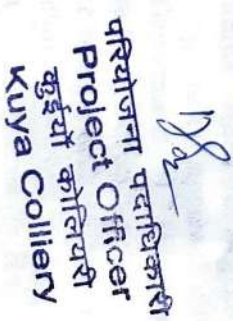 परियोजना पदाधिकारी
Project Officer
कुईयाँ कोलियरी
Kuya Colliery